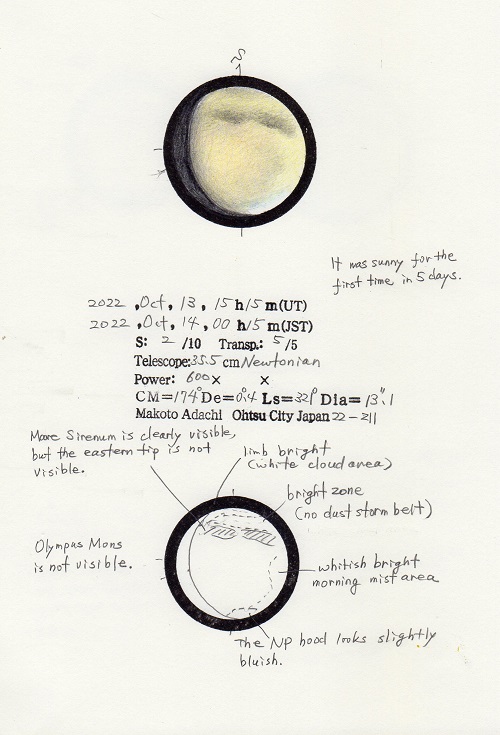 S
It was sunny for the
first time in 5 days.
2022 , Oct, 13, 15 h 15 m (UT)
2022 , Oct, 14, 00 h 15 m (JST)
S: 2 /10 Transp.: 5 /5
Telescope: 35.5 cm Newtonian
Power: 600 × ×
CM=174° De=0°.4 Ls=321° Dia=13".1
Makoto Adachi Ohtsu City Japan 22-211
Mare Sirenum is clearly visible,
but the eastern tip is not
visible.
limb bright
(white cloud area)
bright zone
(no dust storm belt)
Olympus Mons
is not visible.
whitish bright
morning mist area
The NP hood looks slightly
bluish.